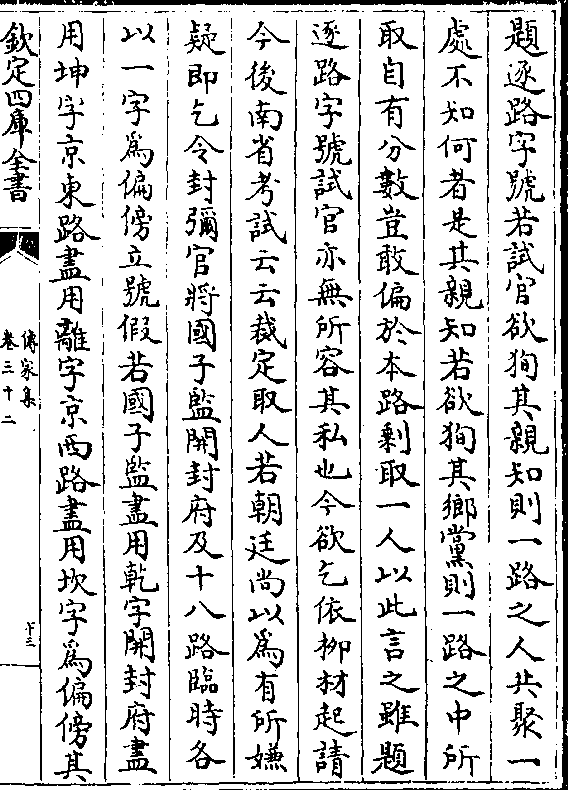 題逐路字號若試官欲狥其親知則一路之人共聚一
處不知何者是其親知若欲狥其鄉黨則一路之中所
取自有分數豈敢偏於本路剰取一人以此言之雖題
逐路字號試官亦無所容其私也今欲乞依栁材起請
今後南省考試云云裁定取人若朝廷尚以為有所嫌
疑即乞令封彌官將國子監開封府及十八路臨時各
以一字爲偏傍立號假若國子監盡用乾字開封府盡
用坤字京東路盡用離字京西路盡用坎字爲偏傍其
欽定四庫全書
傳家集
卷三十二
十三